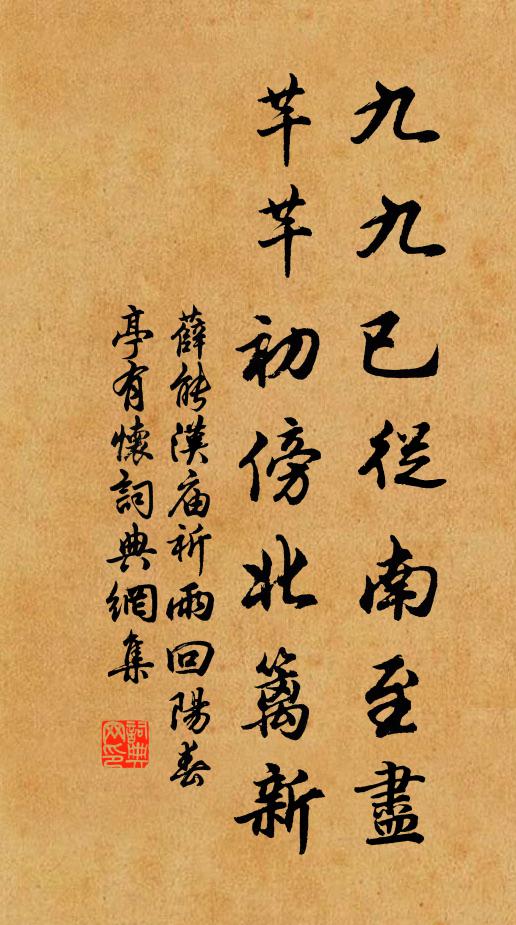 九九已從南至盡
芊芊初傍北籬新
薛能漢庙祈雨回陽春
亭有懷詞典網集
詞典网印